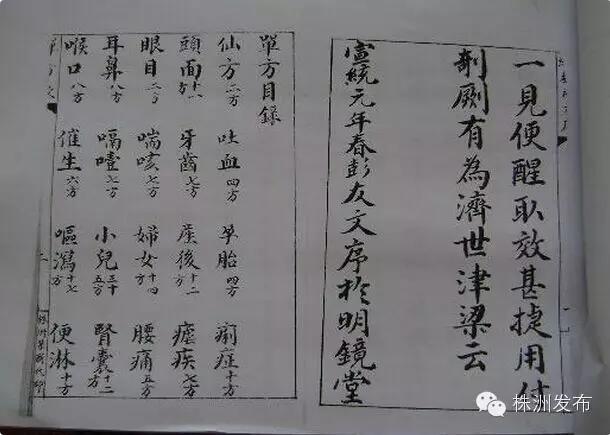 一見便醒取效甚捷用付
剞劂有為濟世津梁云
宣統元年春彭友文序於明鏡堂
單方目錄
仙方二方 吐血四方 孕胎四方 痢症十方
頭面十一方 牙齒七方 産後十二方 瘧疾七方
眼目二方 喘咳七方 婦女十四方 腰痛五方
耳鼻八方 嗝噎七方 小兒三十五方 腎囊十二方
喉口八方 催生六方 嘔瀉十七方 便淋十方
株洲发布